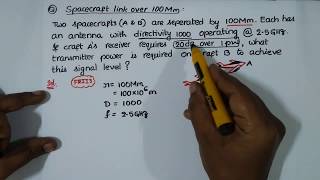 ② Spacecraft link over 100Mm:
Two spacecrafts (A & B) are separated by 100Mm. Each has
an antenna with directivity 1000 operating @ 2.5GHz
If craft A's receiver requires 20dB over 1pW, what
transmitter power is required on craft B to achieve
this signal level?
A
Sol
FRIIS
r = 100Mm
= 100×10⁶ m
D = 1000
f = 2.5GHz